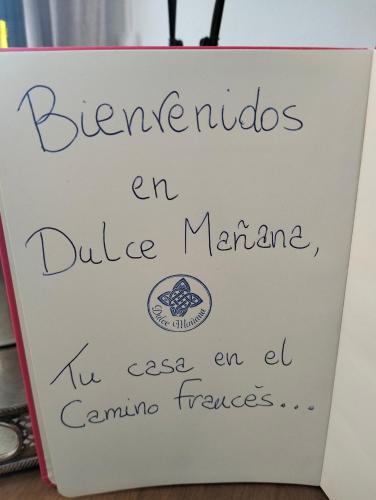 Bienvenidos
en
Dulce Mañana,
Dulce Mañana
Tu casa en el
Camino francés...